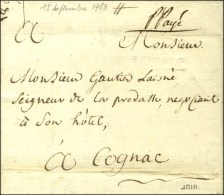 18 Septembre 1780
P Payé
A
Monsieur
Monsieur Gautier Lainé
Seigneur de la
negociant
a Son hôtel,
A Cognac